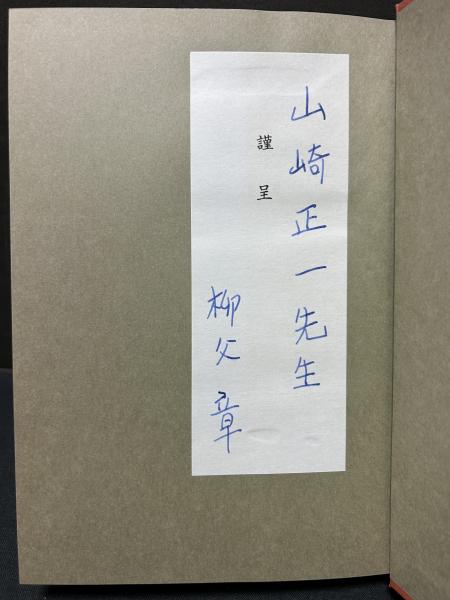 山崎正一先生
謹呈
柳父章